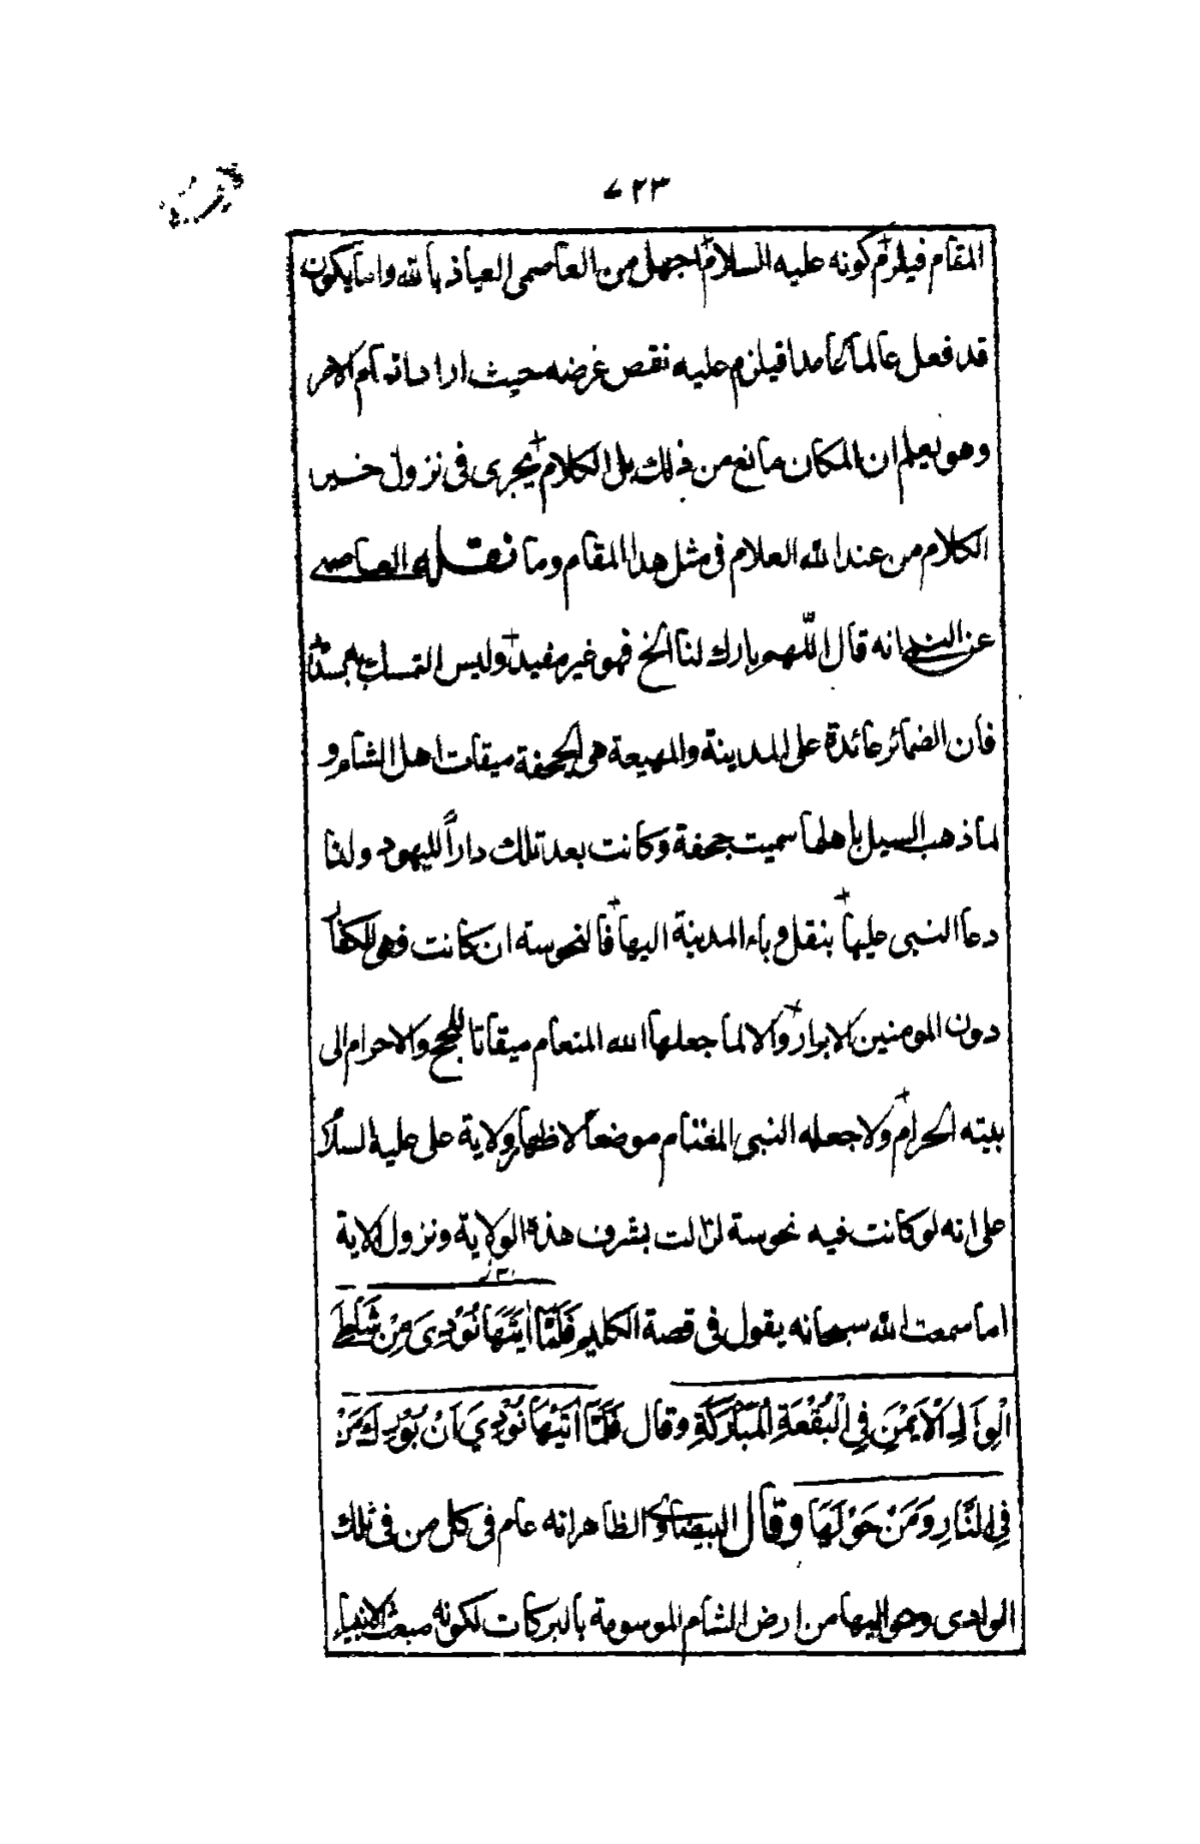 ٧٢٣
المقام فيلزم كونه عليه السلام اجهل من العاصمي العياذ بالله واما يكون
قد فعل عالما عامدا فيلزم عليه نقص غرضه حيث اراد اتمام الامر
وهو يعلم ان المكان مانع من ذلك بل الكلام يجرى فى نزول خير
الكلام من عند الله العلام فى مثل هذا المقام وما نقله العاصمى
عن النبى انه قال اللهم بارك لنا الخ فهو غير مفيد وليس التمسك به بسديد
فان الضمائر عائدة على المدينة والمهيعة هى الجحفة ميقات اهل الشام و
لما ذهب السيل باهلها سميت جحفة وكانت بعد تلك داراً لليهود ولذا
دعا النبى عليها بنقل وباء المدينة اليها فالنحوسة ان كانت فهى للكفار
دون المومنين الابرار والا لما جعلها الله المنعام ميقاتا للحج والاحرام الى
بيته الحرام ولا جعله النبى المغتنام موضعاً لاظهار ولاية على عليه السلام
على انه لو كانت فيه نحوسة لزالت بشرف هذه الولاية ونزول الاية
اما سمعت الله سبحانه يقول فى قصة الكليم فَلَمَّا اَتٰهَا نُوْدِىَ مِنْ شَاطِئِ
الْوَادِ الْاَيْمَنِ فِى الْبُقْعَةِ الْمُبٰرَكَةِ وقال فَلَمَّا اَتٰهَا نُوْدِىَ اَنْ بُوْرِكَ مَنْ
فِى النَّارِ وَمَنْ حَوْلَهَا وقال البيضاوى الظاهر انه عام فى كل من فى تلك
الوادى وحواليها من ارض الشام الموسومة بالبركات لكونه مبعث الانبياء